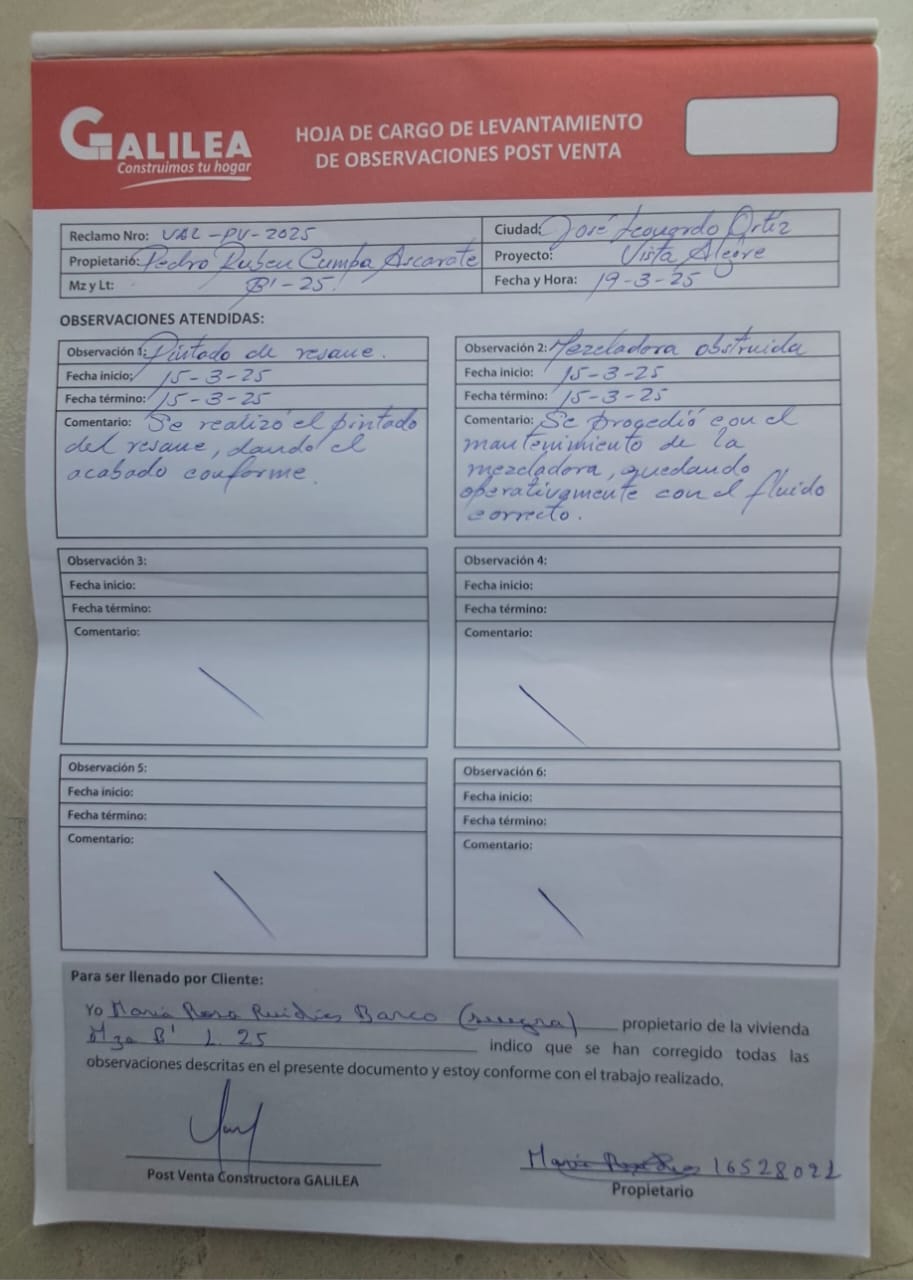 GALILEA
Construimos tu hogar
HOJA DE CARGO DE LEVANTAMIENTO
DE OBSERVACIONES POST VENTA
Reclamo Nro: VAL-PV-2025
Ciudad: José Leonardo Ortíz
Propietario: Pedro Ruben Cumpa Ascarate
Proyecto: Vista Alegre
Mz y Lt: B'-25
Fecha y Hora: 19-3-25
OBSERVACIONES ATENDIDAS:
Observación 1: Pintado de resane.
Fecha inicio: 15-3-25
Fecha término: 15-3-25
Comentario: Se realizó el pintado
del resane, dando el
acabado conforme.
Observación 2: Mezcladora obstruida
Fecha inicio: 15-3-25
Fecha término: 15-3-25
Comentario: Se procedió con el
mantenimiento de la
mezcladora, quedando
operativamente con el fluido
correcto.
Observación 3:
Fecha inicio:
Fecha término:
Comentario:
Observación 4:
Fecha inicio:
Fecha término:
Comentario:
Observación 5:
Fecha inicio:
Fecha término:
Comentario:
Observación 6:
Fecha inicio:
Fecha término:
Comentario:
Para ser llenado por Cliente:
Yo María Rosa Ruidías Barco (suegra) propietario de la vivienda
Mza B' L. 25 indico que se han corregido todas las
observaciones descritas en el presente documento y estoy conforme con el trabajo realizado.
Post Venta Constructora GALILEA
María 16528021
Propietario